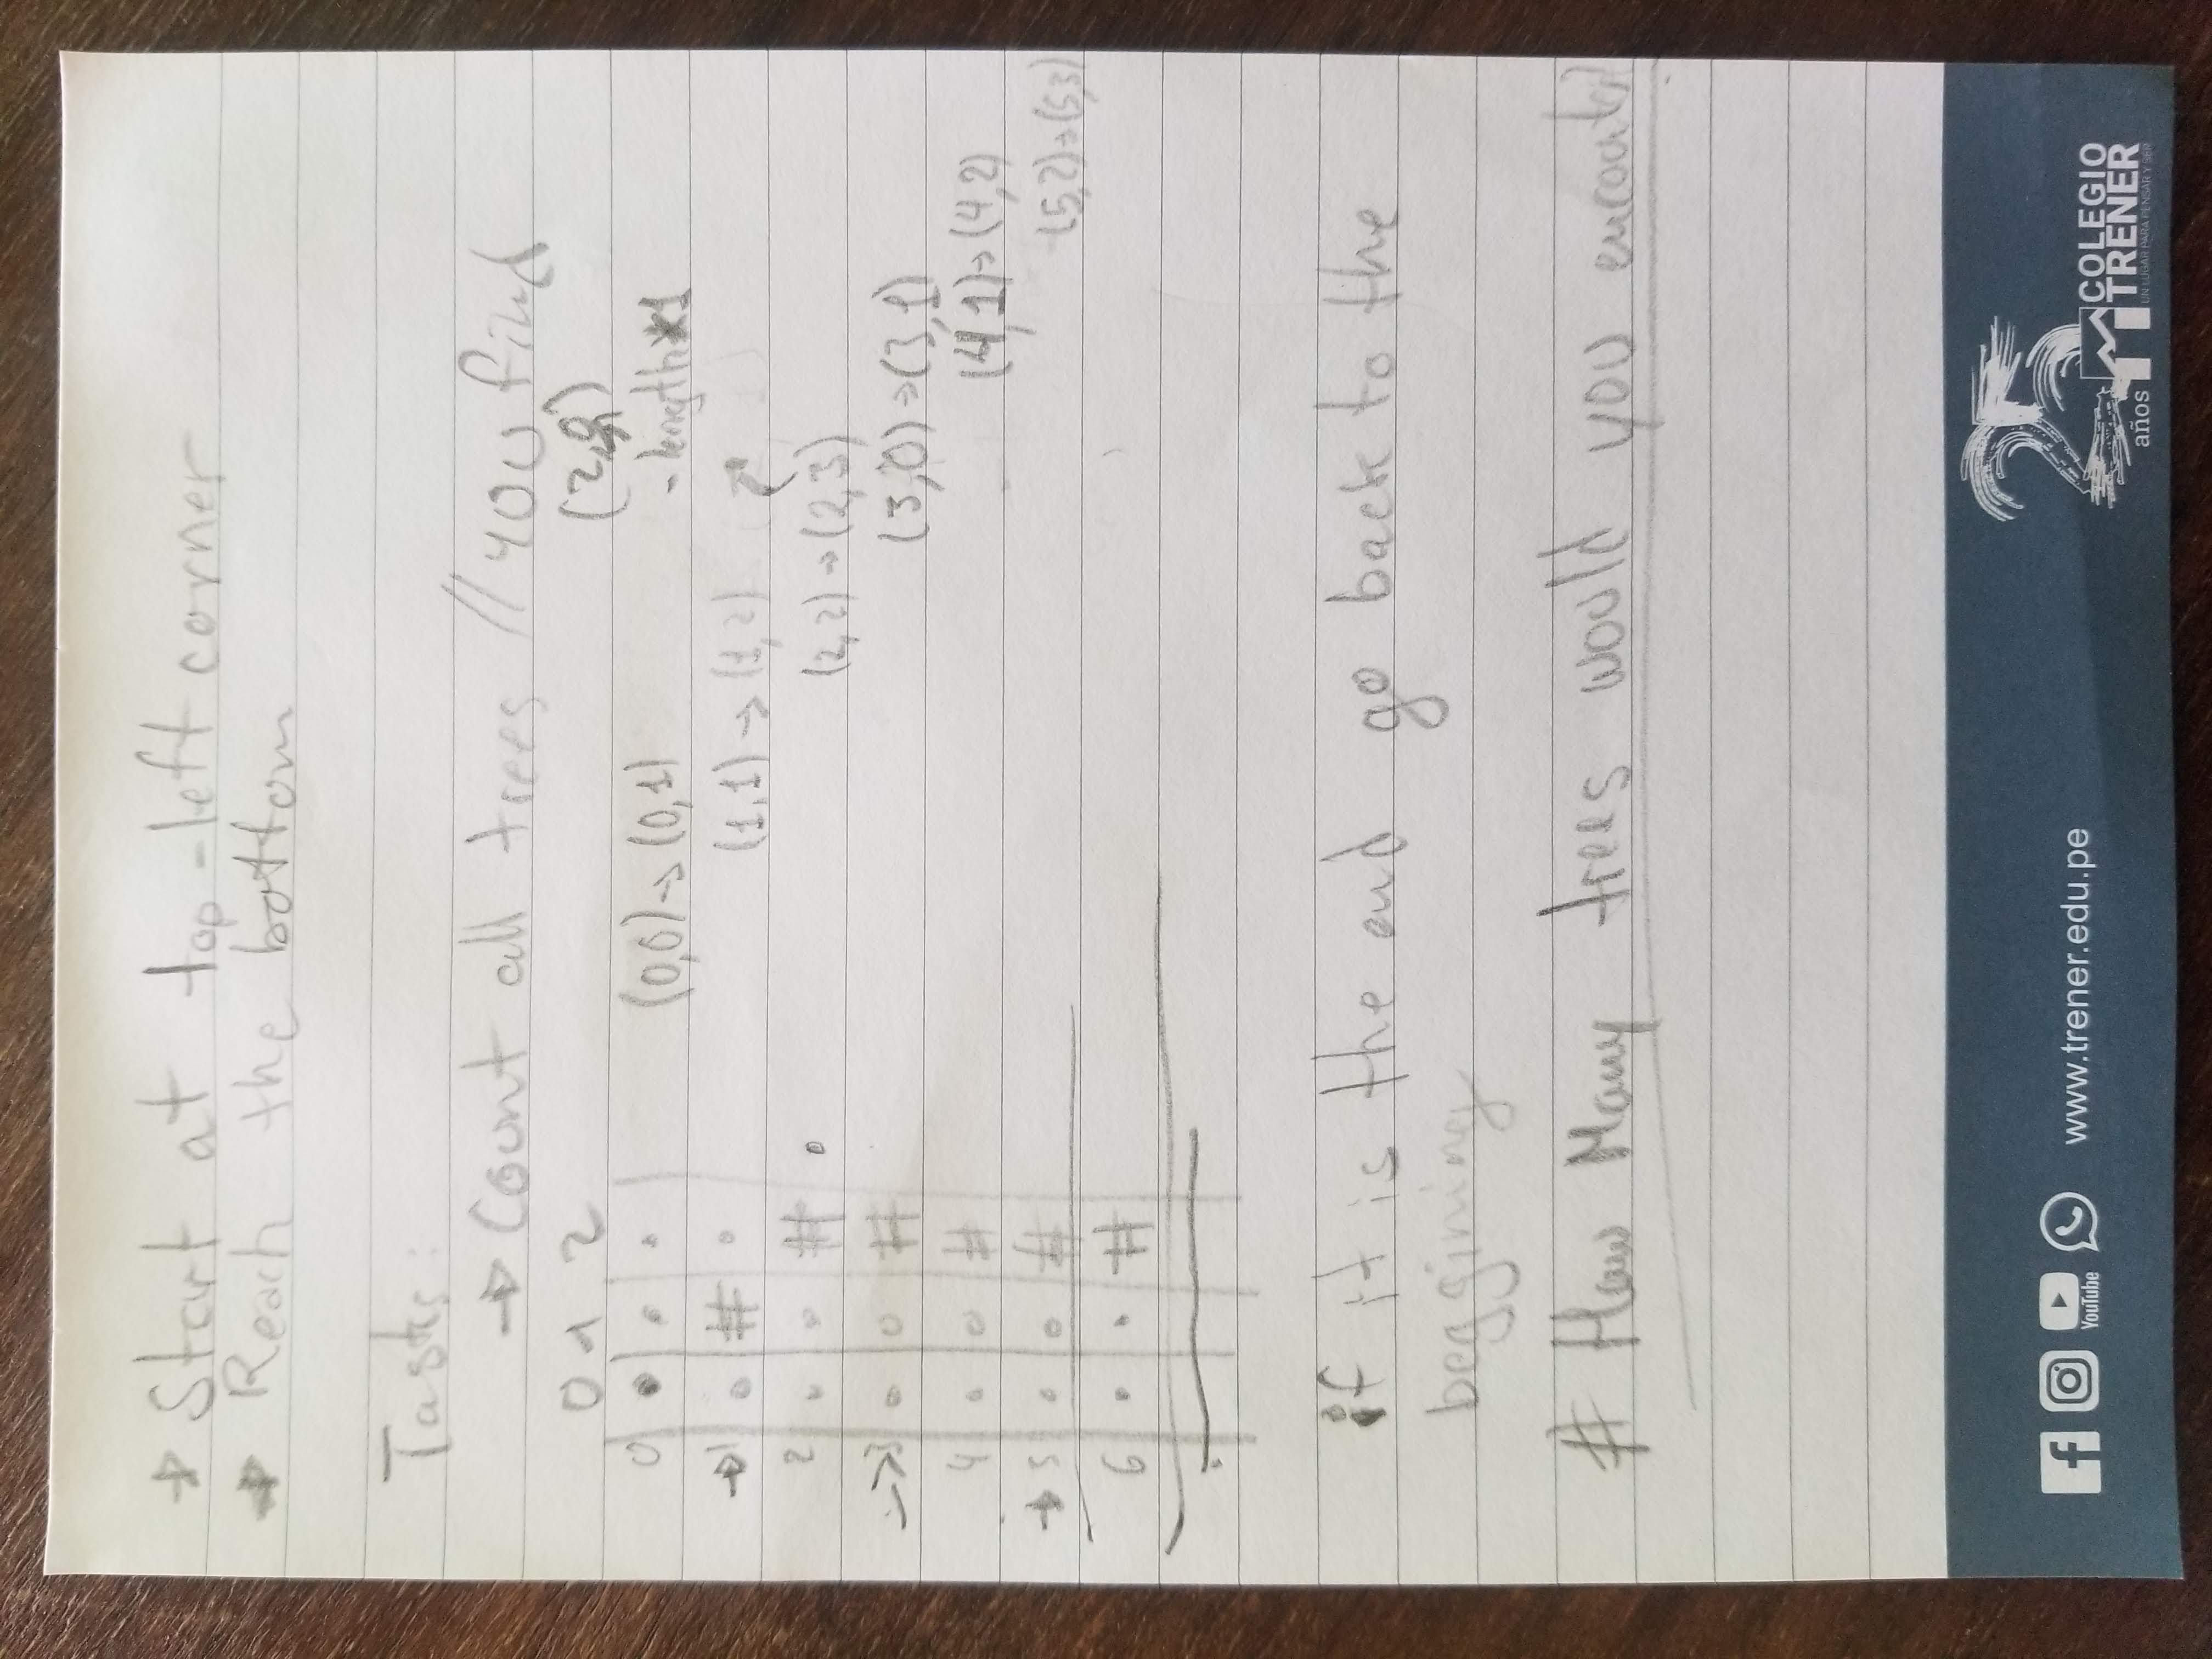 → Start at top-left corner
→ Reach the bottom
Tasks:
→ Count all trees // you find
0 1 2
(2,
0 . . .
(0,0) → (0,1)
- length
→ 1 . # .
(1,1) → (1,2)
2 . . # .
(2,2) → (2,3)
→ 3 . . #
(3,0) → (3,1)
4 . . #
(4,1) → (4,2)
→ 5 . . #
(5,2) → (5,3)
6 . . #
if it is the end go back to the
beggining
# How Many trees would you
YouTube
www.trener.edu.pe
25
años
COLEGIO
TRENER
UN LUGAR PARA PENSAR Y SER